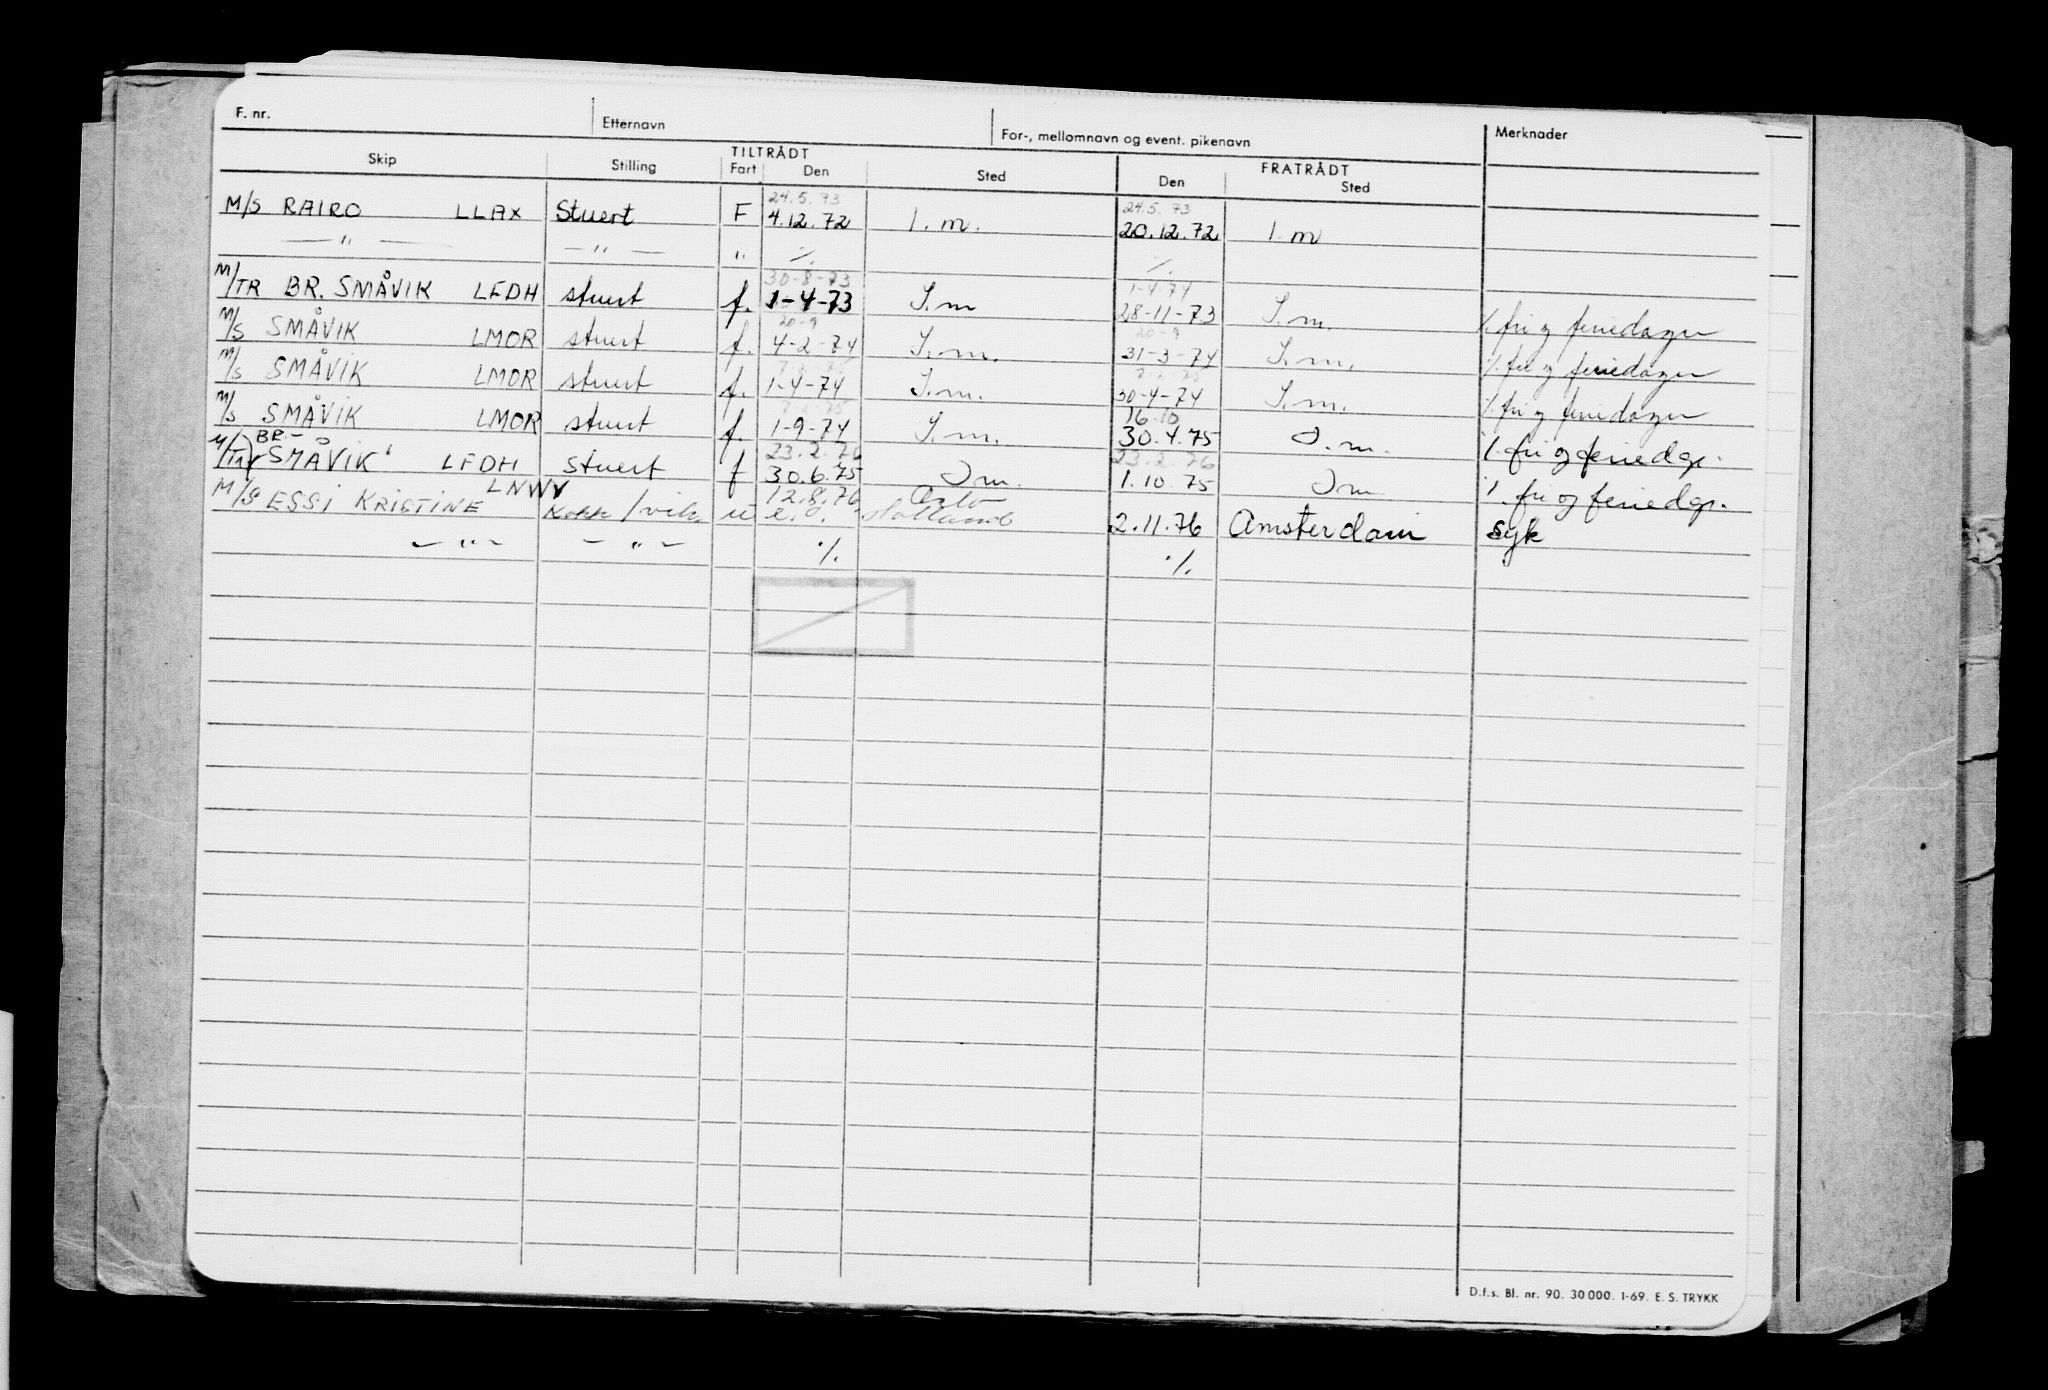 F. nr. Etternavn For-, mellomnavn og event. pikenavn Merknader
TILTRÅDT FRATRÅDT
Skip Stilling Fart Den Sted Den Sted
24.5.73 24.5.73
M/S RAIRO LLAX Stuert F 4.12.72 I.m. 20.12.72 I m
— " — — " — " ./. ./.
30-8-73 1-4-74
M/TR BR. SMÅVIK LFDH stuert f. 1-4-73 I.m 28-11-73 I.m. ./. fri og feriedager
20-9 20-9
M/S SMÅVIK LMOR stuert f. 4-2-74 I.m. 31-3-74 I.m. ./. fri og feriedager
M/S SMÅVIK LMOR stuert f. 1-4-74 I.m. 30-4-74 I.m. ./. fri og feriedager
16.10
M/S SMÅVIK LMOR stuert f. 1-9-74 I.m. 30.4.75 I.m. ./. fri og feriedgr.
23.2.76 23.2.76
M/Tr BR- SMÅVIK LFDH Stuert f 30.6.75 I m. 1.10.75 I m ./. fri og feriedgr.
LNWV 12.8.76 Oslo
M/S ESSI KRISTINE Kokk / u e.o. Holland 2.11.76 Amsterdam syk
— " — — " — ./. ./.
D.f.s. Bl. nr. 90. 30 000. 1-69. E. S. TRYKK